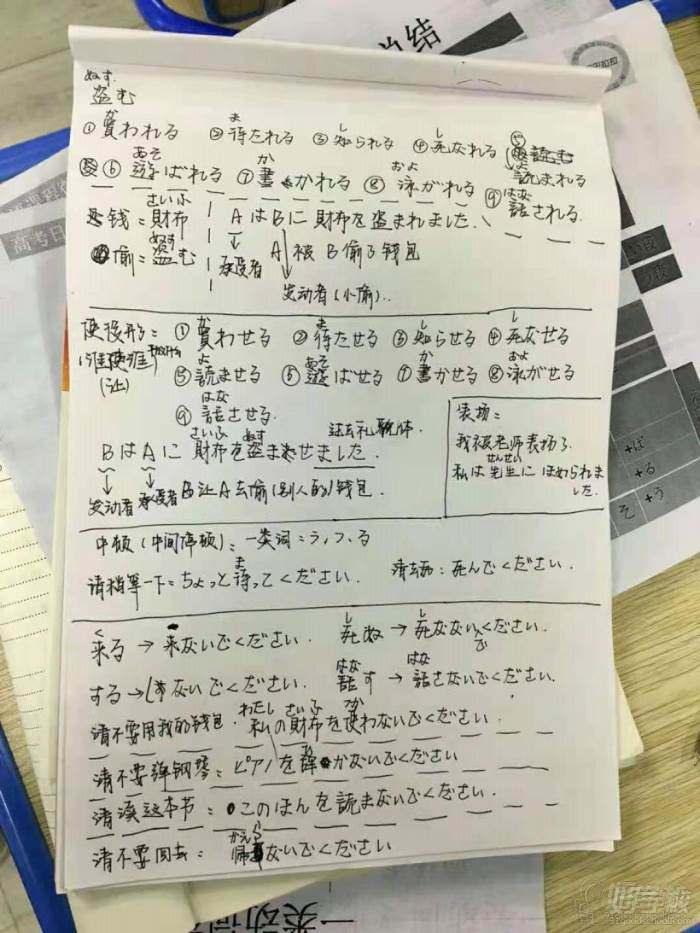 总结
ぬす
盗む
か ま し し よ
①買われる ②待たれる ③知られる ④死なれる ⑤読む
読まれる
あそ か およ はな
⑥遊ばれる ⑦書かれる ⑧泳がれる ⑨話される
さいふ
钱=財布 AはBに財布を盗まれました.
ぬす
偷=盗む 承受者 A被B偷了钱包
发动者(小偷)..
か ま し し
使役形= ①買わせる ②待たせる ③知らせる ④死なせる
よ あそ か およ
谁使谁 ⑤読ませる ⑥遊ばせる ⑦書かせる ⑧泳がせる
(让)
はな
⑨話させる. 过去礼貌体.
さいふ ぬす
BはAに財布を盗ませました.
发动者 承受者 B让A去偷(别人的)钱包.
表扬=
我被老师表扬了
せんせい
私は先生にほめられま
した.
中顿(中间停顿)= 一类词=う,つ,る
ま
请稍等一下=ちょっと待ってください. 请去死:死んでください.
く し し
来る→来ないでください. 死ぬ→死なないでください.
はな はな
する→しないでください. 話す→話さないでください.
わたし さいふ つか
请不要用我的钱包. 私の財布を使わないでください.
请不要弹钢琴=ピアノを弾かないでください
请读这本书=このほんを読まないでください.
かえ
请不要回去= 帰らないでください
一类动词
+ば
+る
そ +う
高考日